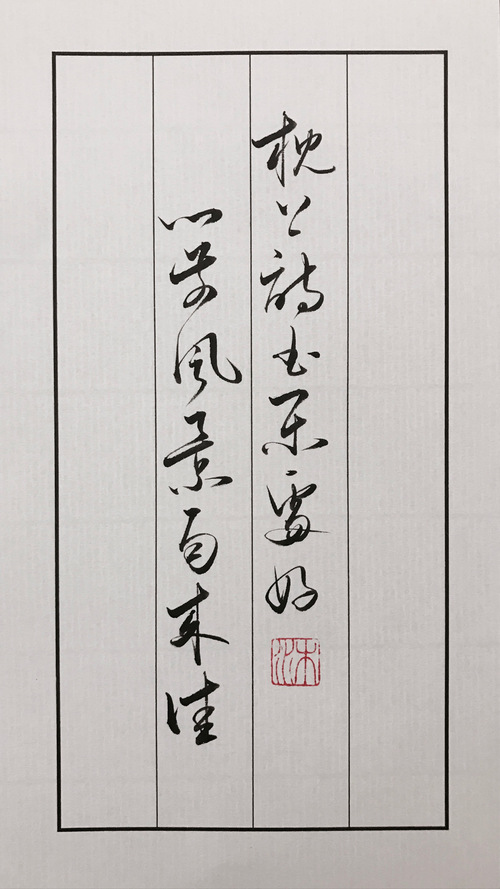 枕上詩書閒處好
門前風景雨來佳